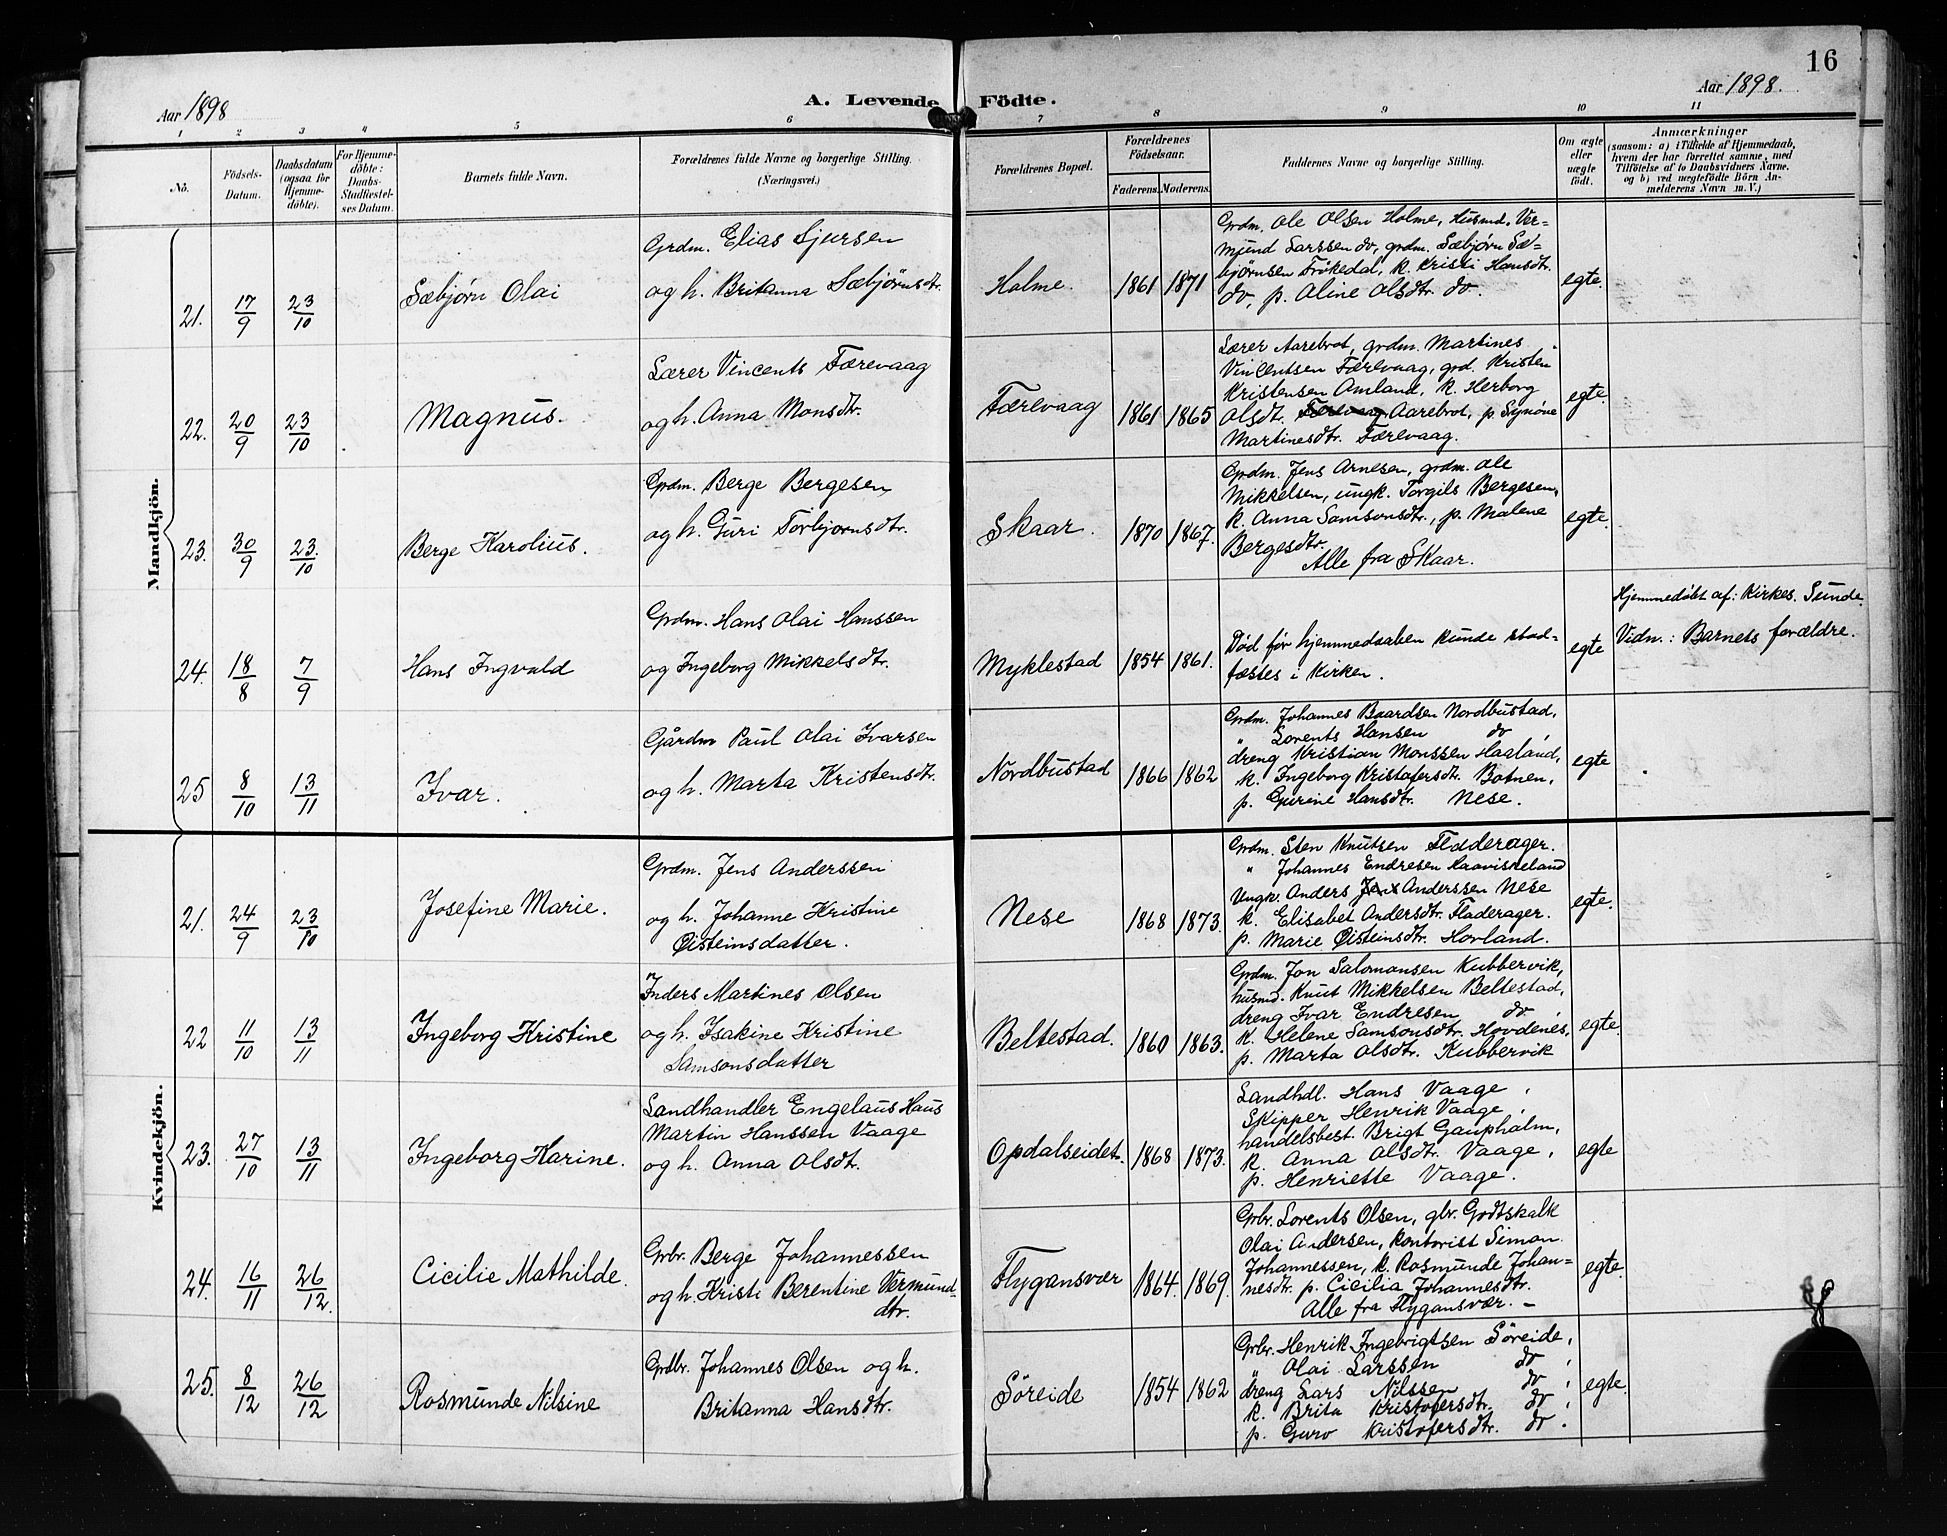 16
Aar 1898
A. Levende Födte.
Aar 1898.
1 2 3 4 5 6 7 8 9 10 11
No.
Födsels-
Datum.
Daabsdatum
(ogsaa for
Hjemme-
döbte).
For Hjemme-
döbte:
Daabs-
Stadfæstel-
ses Datum.
Barnets fulde Navn.
Forældrenes fulde Navne og borgerlige Stilling.
(Næringsvei.)
Forældrenes Bopæl.
Forældrenes
Födselsaar.
Faderens. Moderens.
Faddernes Navne og borgerlige Stilling.
Om ægte
eller
uægte
födt.
Anmærkninger
(saasom: a) i Tilfælde af Hjemmedaab,
hvem der har forrettet samme, med
Tilföielse af to Daabsvidners Navne.
og b) ved uægtefödte Börn An-
melderens Navn m. V.)
Mandkjön.
21. 17/9 23/10 Sæbjørn Olai
Grdm. Elias Sjursen
og h. Britanna Sæbjörnsdtr.
Holme. 1861 1871
Grdm. Ole Olsen Holme, Husmd. Ver-
mund Larssen do, grdm. Sæbjørn Sæ-
bjørnsen Trökedal, k. Kristi Hansdtr.
do, p. Aline Olsdtr. do.
egte.
22. 20/9 23/10 Magnus.
Lærer Vincents Færevaag
og h. Anna Monsdtr.
Færevaag 1861 1865
Lærer Aarebrot, grdm. Martines
Vincentsen Færevaag, grd. Kristen
Kristensen Amland, k. Herborg
Olsdt. Færevaag Aarebrot, p. Synöne
Martinesdtr. Færevaag.
egte.
23. 30/9 23/10 Berge Karolius.
Grdm. Berge Bergesen
og h. Guri Torbjornsdtr.
Skaar. 1870 1867.
Grdm. Jens Arnesen, grdm. Ole
Mikkelsen, ungk. Torgils Bergesen,
k. Anna Samsonsdtr., p. Malene
Bergesdtr.
Alle fra Skaar.
egte.
24. 18/8 7/9 Hans Ingvald
Grdm. Hans Olai Hanssen
og Ingeborg Mikkelsdtr.
Myklestad 1854 1861.
Död før hjemmedaaben kunde stad-
fæstes i Kirken.
egte
Hjemmedöbt af: Kirkes. Sunde.
Vidn.: Barnets forældre.
25 8/10 13/11 Ivar.
Gårdm Paul Olai Ivarsen
og h. Marta Kristensdtr.
Nordbustad 1866 1862
Grdm. Johannes Baardsen Nordbustad,
" Lorents Hansen do
dreng Kristian Monssen Haaland,
k. Ingeborg Kristofersdtr. Botnen,
p. Gurine Hansdtr. Nese.
egte
Kvindekjön.
21. 24/9 23/10 Josefine Marie.
Grdm. Jens Anderssen
og h. Johanne Kristine
Øisteinsdatter.
Nese 1868 1873.
Grdm. Sten Knutsen Fladerager.
" Johannes Endresen Raaviskeland
Ungk. Anders Jens Anderssen Nese
k. Elisabet Andersdtr. Fladerager.
p. Marie Øisteinsdtr. Hovland.
egte.
22 11/10 13/11 Ingeborg Kristine
Inders Martines Olsen
og h. Isakine Kristine
Samsonsdatter
Beltestad. 1860 1863.
Grdm. Jon Salomonsen Kubbervik,
husmd. Knut Mikkelsen Beltestad,
dreng Ivar Endresen do,
k. Helene Samsonsdtr. Hovdenes,
p. Marta Olsdtr. Kubbervik
egte.
23. 27/10 13/11 Ingeborg Harine.
Landhandler Engelaus Haus
Martin Hanssen Vaage
og h. Anna Olsdt.
Opdalseidet. 1868 1873.
Landhdl. Hans Vaage,
Skipper Henrik Vaage,
handelsbest. Brigt Gaupholm,
k. Anna Olsdtr. Vaage,
p. Henriette Vaage.
egte
24. 16/11 26/12. Cicilie Mathilde.
Grbr. Berge Johannessen
og h. Kristi Berentine Vermund-
dtr.
Flygansvær 1864. 1869.
Grbr. Lorents Olsen, gbr. Godtskalk
Olai Andersen, kontorist Simon
Johannessen, k. Rosmunde Johan-
nesdtr. p. Cicilia Johannesdtr.
Alle fra Flygansvær. –
egte.
25. 8/12 26/12 Rosmunde Nilsine
Grdbr. Johannes Olsen og h.
Britanna Hansdtr.
Søreide 1854 1862
Grbr. Henrik Ingebrigtsen Söreide,
" Olai Larssen do,
dreng Lars Nilssen do,
k. Brita Kristofersdtr. do,
p. Guro Kristofersdtr. do.
egte.